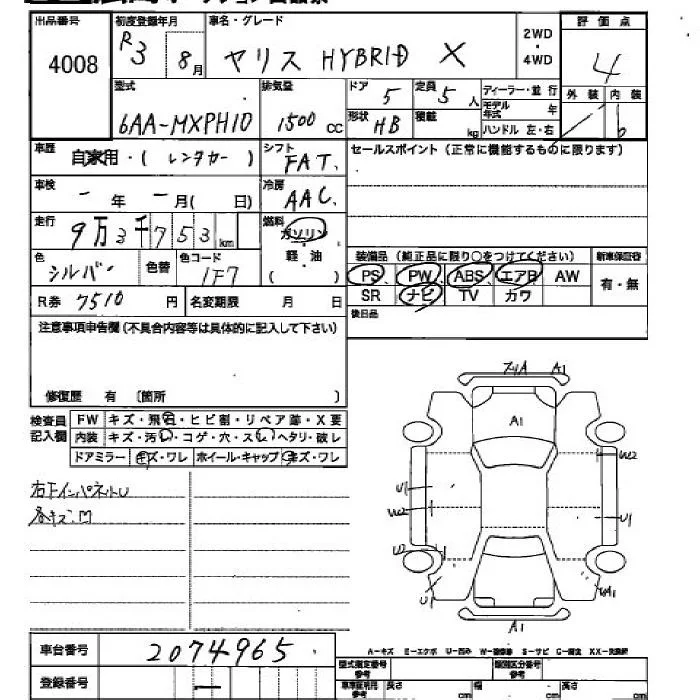 出品番号 4008
初度登録年月 R3 8月
車名・グレード ヤリス HYBRID X
2WD・4WD
評価点 4
外装 内装
型式 6AA-MXPH10
排気量 1500cc
ドア 5
定員 5人
形状 HB
積載 kg
ディーラー・並行
モデル年式 年
ハンドル 左・右
車歴 自家用・(レンタカー)
シフト FAT
セールスポイント(正常に機能するものに限ります)
車検 - 年 - 月( 日)
冷房 AAC
走行 9万3千753km
燃料 ガソリン 軽油 ( )
色 シルバー 色替 色コード 1F7
装備品(純正品に限り○をつけてください) 新車保証書
PS PW ABS エアB AW 有・無
SR ナビ TV カワ
R券 7510円 名変期限 月 日
後日品
注意事項申告欄(不具合内容等は具体的に記入して下さい)
修復歴 有 〔箇所 〕
検査員記入欄
FW キズ・飛石・ヒビ割・リペア跡・X要
内装 キズ・汚レ・コゲ・穴・スレ・ヘタリ・破レ
ドアミラー キズ・ワレ ホイール・キャップ キズ・ワレ
A1
A1
W2
U1
W2
U1
U2
U1
A1
A1
各キズ.M
A-キズ E-エクボ U-凹み W-補修跡 S-サビ C-腐食 XX-交換済
車台番号 2074965
登録番号 -
型式指定番号 類別区分番号
参考 長さ cm 幅 cm 高さ cm